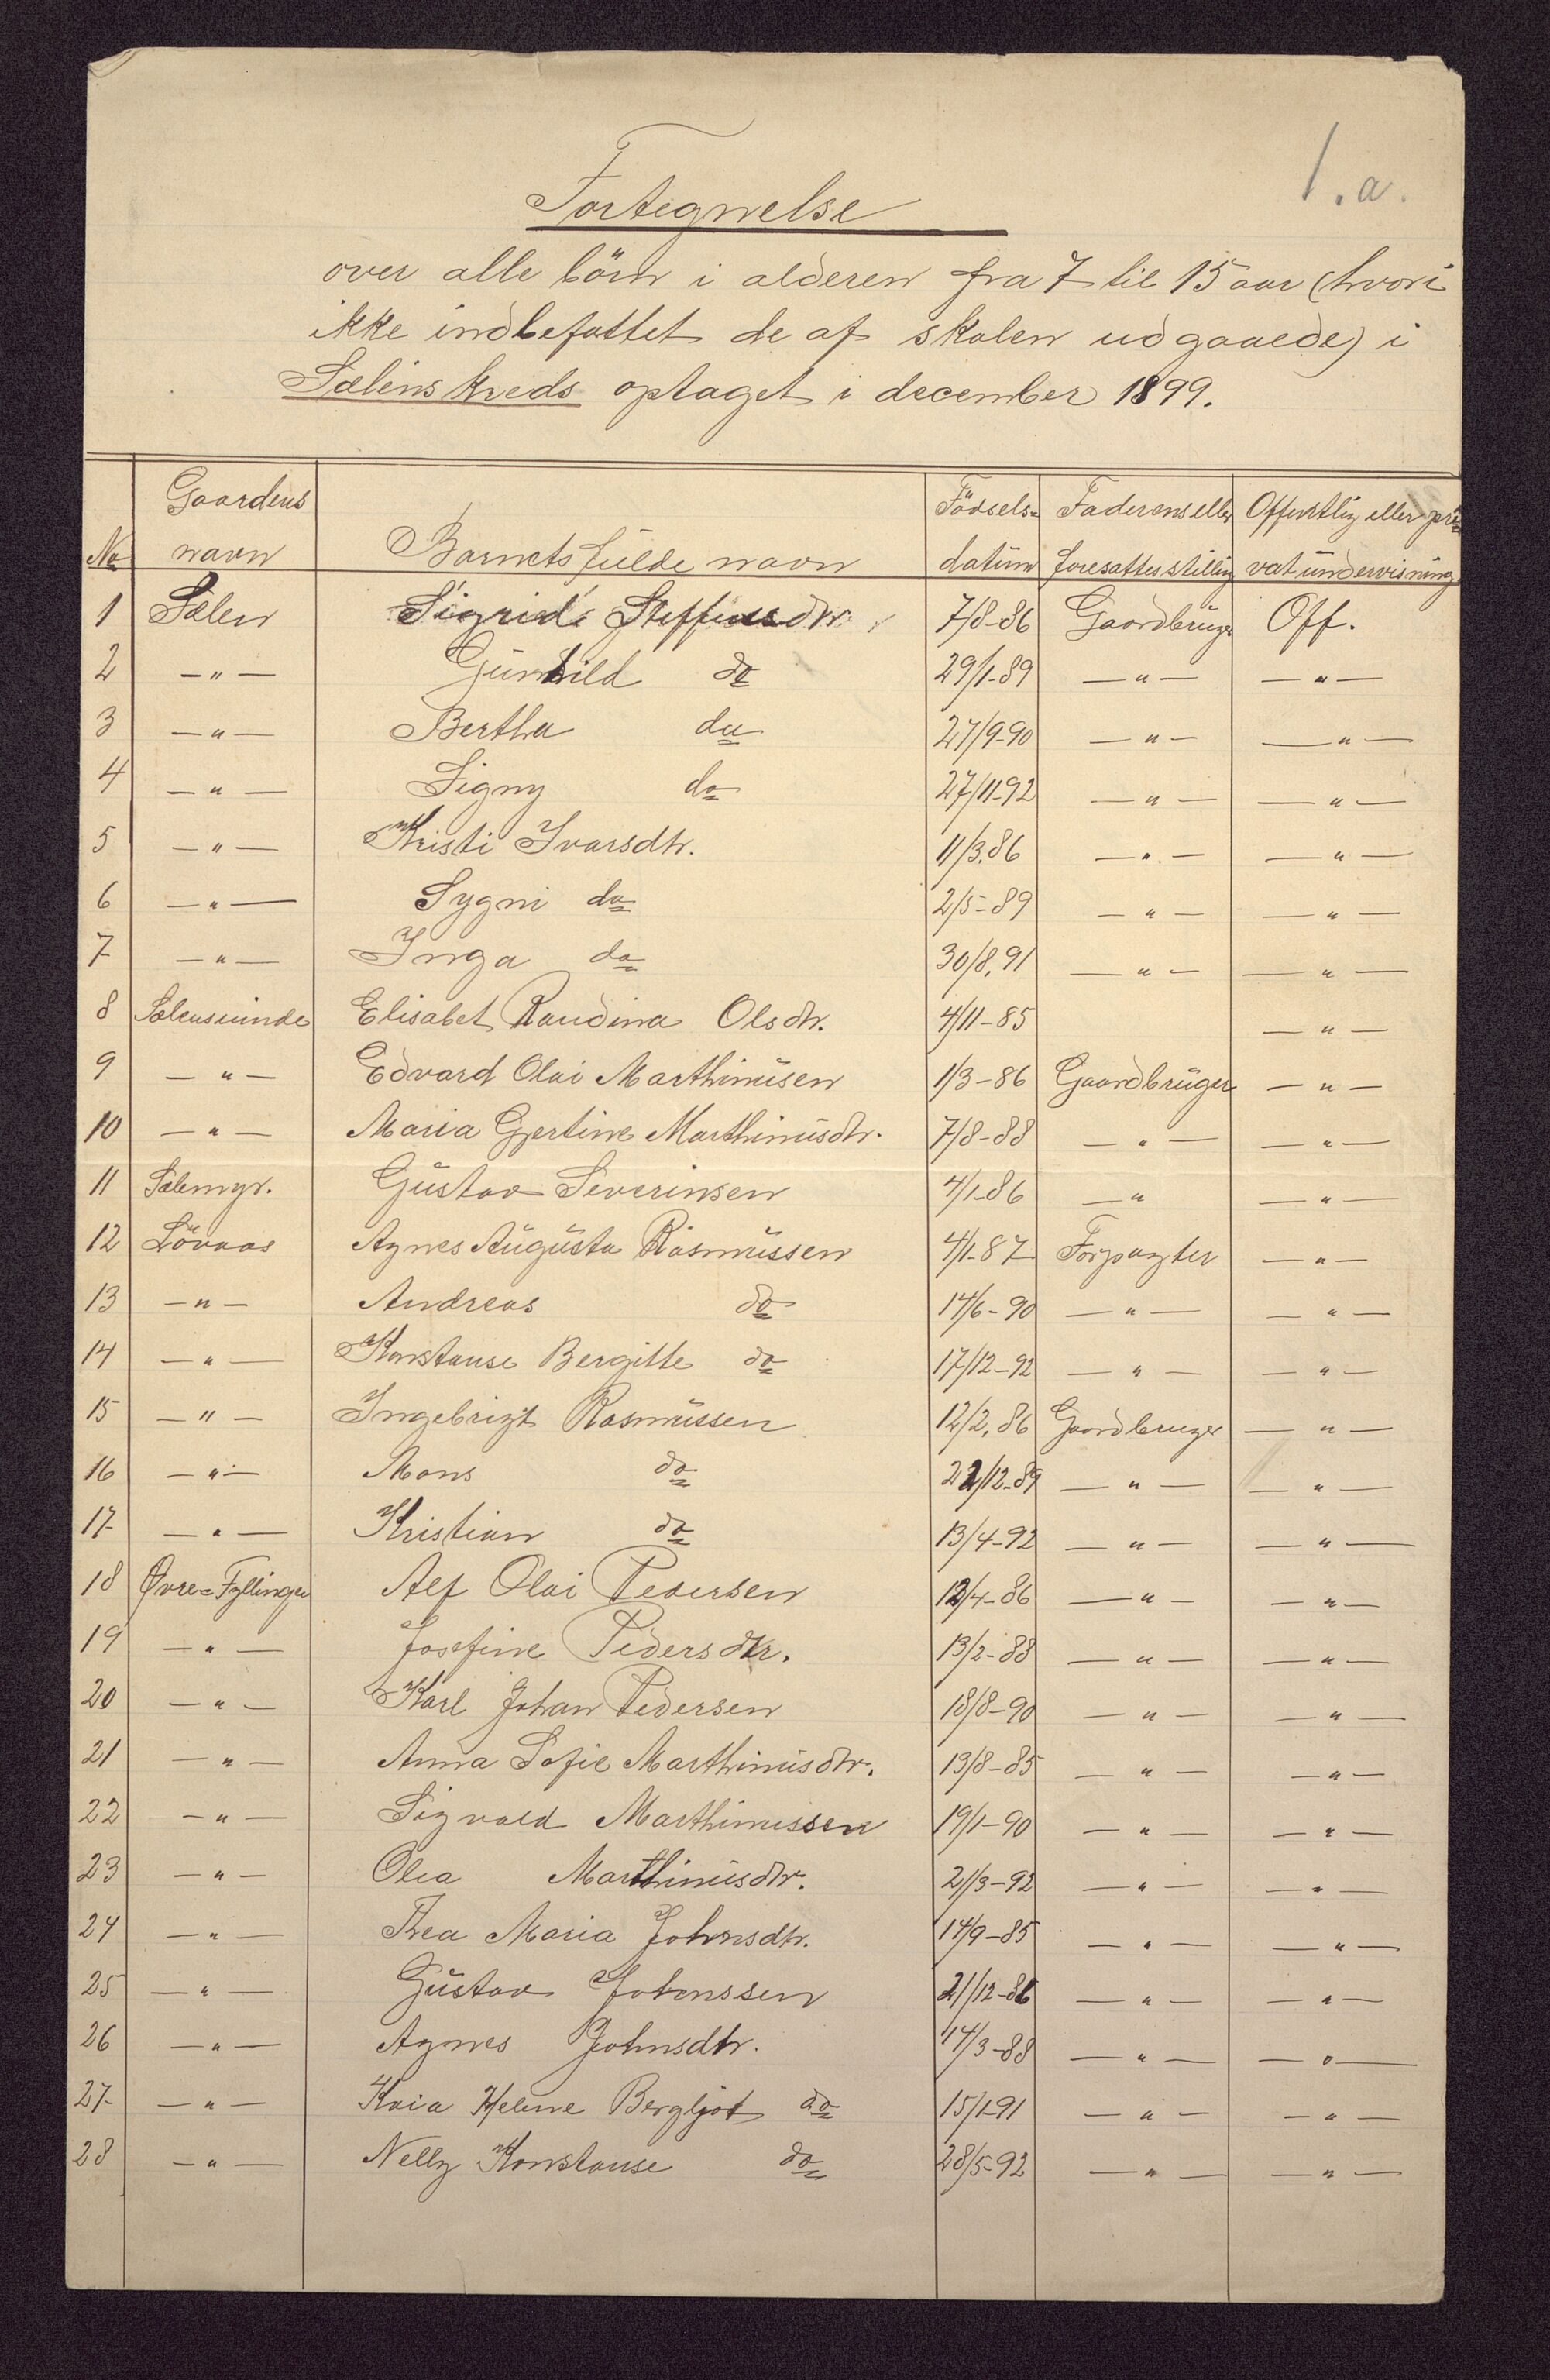 1.a.
Fortegnelse
over alle börn i alderen fra 7 til 15 aar (hvori
ikke indbefattet de af skolen udgaaede) i
Sælens kreds optaget i december 1899.
No Gaardens navn Barnets fulde navn Födsels-datum Faderens eller foresattes stilling Offentlig eller privat undervisning
1 Sælen Sigrid Steffensdtr. 7/8-86 Gaardbruger Off.
2 —"— Gunhild do 29/1-89 —"— —"—
3 —"— Bertha do 27/9-90 —"— —"—
4 —"— Signy do 27/11-92 —"— —"—
5 —"— Kristi Ivarsdtr. 11/3.86 —"— —"—
6 —"— Sygni do 2/5-89 —"— —"—
7 —"— Inga do 30/8.91 —"— —"—
8 Elisabet Raudina Olsdtr. 4/11-85 —"—
9 —"— Edvard Olai Marthinusen 1/3-86 Gaardbruger —"—
10 —"— Maria Gjertine Marthinusdtr. 7/8-88 —"— —"—
11 Sælemyr. Gustav Severinsen 4/1-86 —" —"—
12 Lövaas Agnes Augusta Rasmussen 4/1-87 Forpagter —"—
13 —"— Andreas do 14/6-90 —"— —"—
14 —"— Konstanse Bergitte do 17/12-92 —"— —"—
15 —"— Ingebrigt Rasmussen 12/2.86 Gaardbruger —"—
16 —"— Mons do 22/12-89 —"— —"—
17 —"— Kristian do 13/4-92 —"— —"—
18 Øvre-Fyllingen Alf Olai Pedersen 12/4-86 —"— —"—
19 —"— Josefine Pedersdtr. 13/2-88 —"— —"—
20 —"— Karl Johan Pedersen 18/8-90 —"— —"—
21 —"— Anna Sofie Marthinusdtr. 13/8-85 —"— —"—
22 —"— Sigvald Marthinussen 19/1-90 —"— —"—
23 —"— Olea Marthinusdtr. 21/3-92 —"— —"—
24 —"— Thea Maria Johnsdtr. 14/9-85 —"— —"—
25 —"— Gustav Johnssen 21/12-86 —"— —"—
26 —"— Agnes Johnsdtr. 14/3-88 —"— —"—
27 —"— Kaia Helene Bergljot do 15/1-91 —"— —"—
28 —"— Nelly Konstanse do 28/5-92 —"— —"—